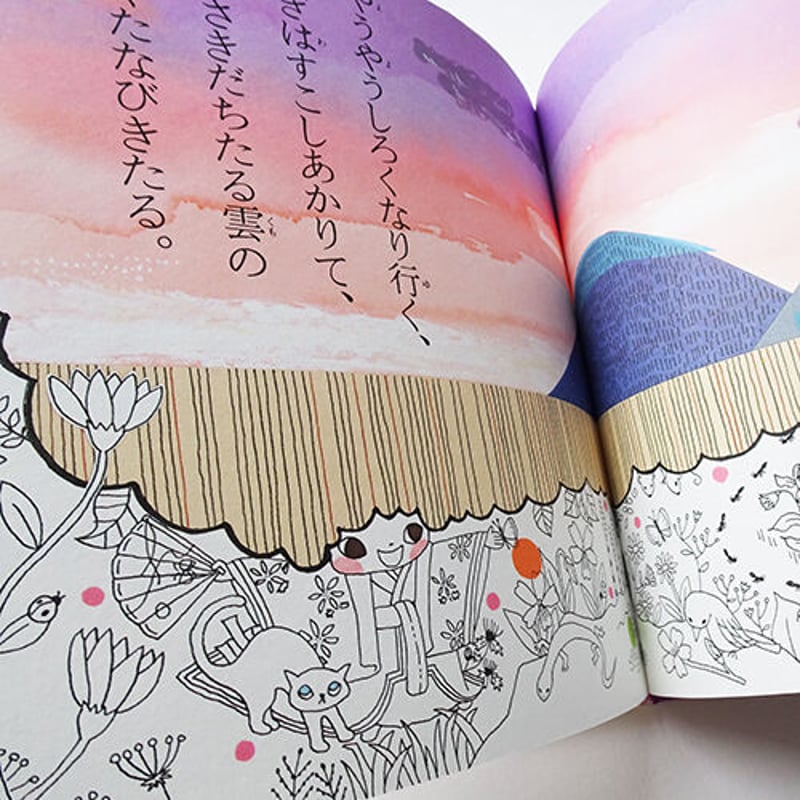 やうやうしろくなり行く、
ぎはすこしあかりて、
さきだちたる雲の
たなびきたる。